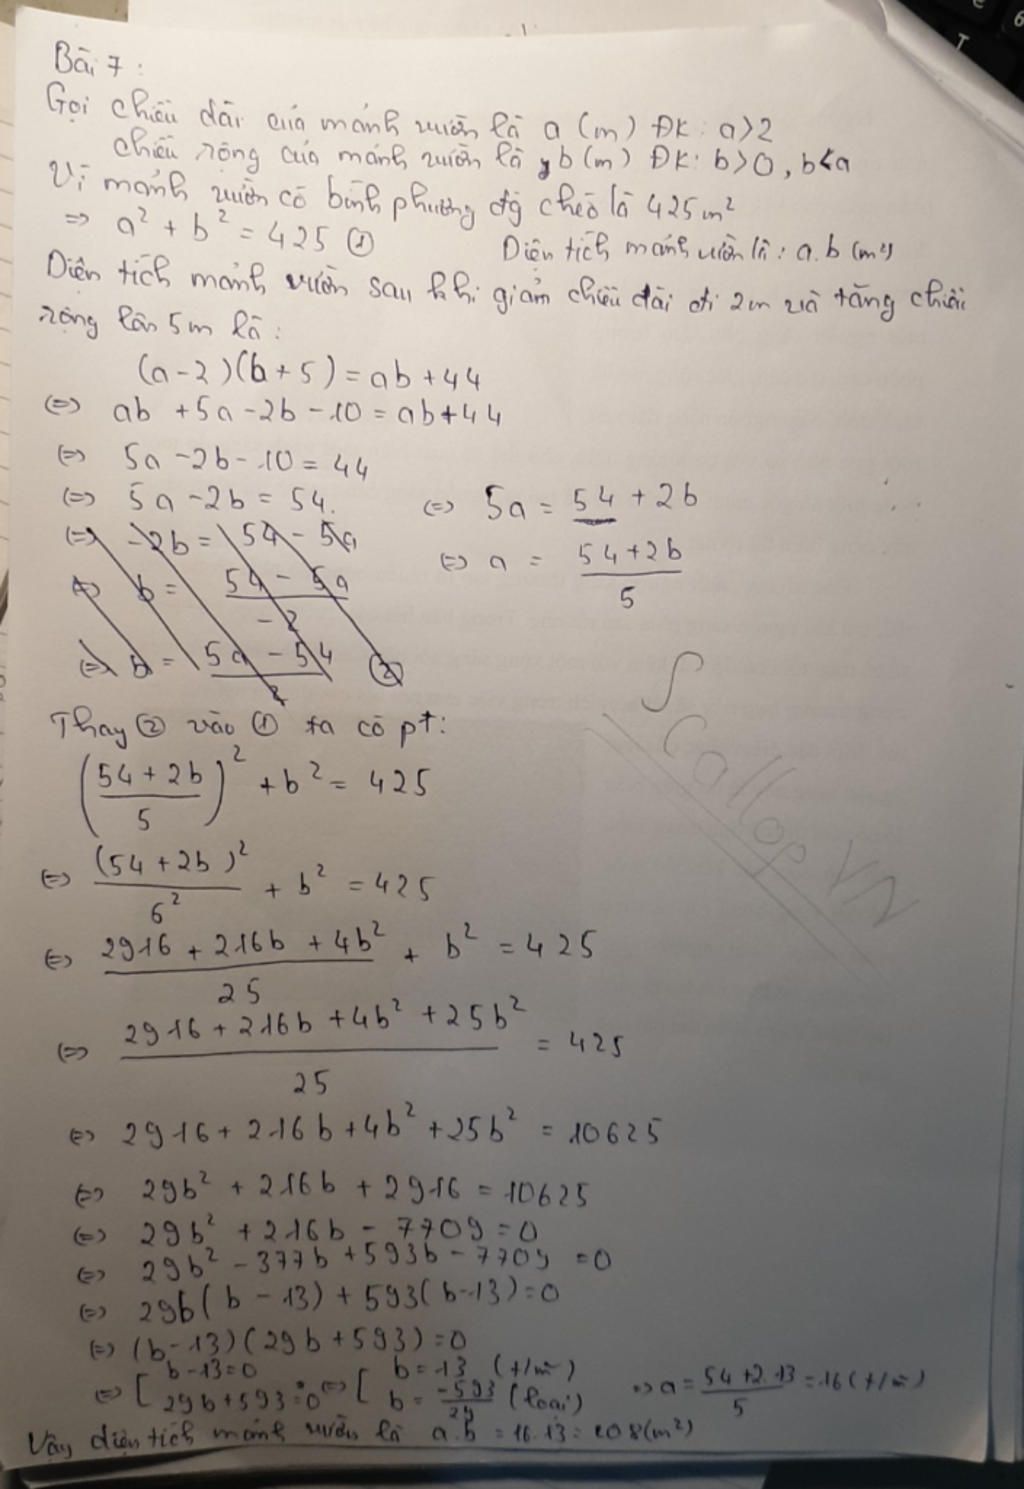 Bài 7:
Gọi chiều dài của mảnh vườn là a (m) ĐK: a>2
chiều rộng của mảnh vườn là b (m) ĐK: b>0, b<a
Vì mảnh vườn có bình phương độ chéo là 425m²
=> a² + b² = 425 ①
Diện tích mảnh vườn là: a.b (m²)
Diện tích mảnh vườn sau khi giảm chiều dài đi 2m và tăng chiều
rộng lên 5m là:
(a-2)(b+5) = ab+44
<=> ab +5a-2b-10 = ab+44
<=> 5a-2b-10=44
<=> 5a-2b = 54.
<=> -2b = 54-5a
<=> b = \frac{54-5a}{-2}
<=> b = \frac{5a-54}{2} ②
<=> 5a = 54 + 2b
<=> a = \frac{54+2b}{5}
Thay ② vào ① ta có pt:
(\frac{54+2b}{5})² + b² = 425
<=> \frac{(54+2b)²}{6²} + b² = 425
<=> \frac{2916 + 216b + 4b²}{25} + b² = 425
<=> \frac{2916 + 216b + 4b² + 25b²}{25} = 425
<=> 2916 + 216b + 4b² + 25b² = 10625
<=> 29b² + 216b + 2916 = 10625
<=> 29b² + 216b - 7709 = 0
<=> 29b² - 377b + 593b - 7709 = 0
<=> 29b(b-13) + 593(b-13)=0
<=> (b-13)(29b+593)=0
<=> [ b-13=0 <=> [ b=13 (t/m)
29b+593=0 b = \frac{-593}{29} (loại)
=> a = \frac{54+2.13}{5} = 16 (t/m)
Vậy diện tích mảnh vườn là a.b = 16.13 = 208(m²)
Scallop VN